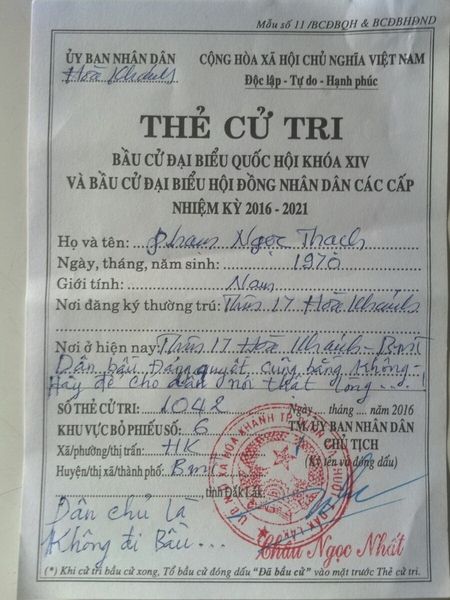 Mẫu số 11/BCĐBQH & BCĐBHĐND
ỦY BAN NHÂN DÂN
Hòa Khánh
CỘNG HÒA XÃ HỘI CHỦ NGHĨA VIỆT NAM
Độc lập - Tự do - Hạnh phúc
THẺ CỬ TRI
BẦU CỬ ĐẠI BIỂU QUỐC HỘI KHÓA XIV
VÀ BẦU CỬ ĐẠI BIỂU HỘI ĐỒNG NHÂN DÂN CÁC CẤP
NHIỆM KỲ 2016 - 2021
Họ và tên: Phạm Ngọc Thạch
Ngày, tháng, năm sinh: 1970
Giới tính: Nam
Nơi đăng ký thường trú: Thôn 17 Hòa Khánh
Nơi ở hiện nay: Thôn 17 Hòa Khánh - Bmt
Dân bầu Đảng quyết cũng bằng không -
Hãy để cho dân nói thật lòng ... !
SỐ THẺ CỬ TRI: 1042
KHU VỰC BỎ PHIẾU SỐ: 6
Xã/phường/thị trấn: HK
Huyện/thị xã/thành phố: Bmt
tỉnh Đắk Lắk
Ngày .... tháng .... năm 2016
TM. ỦY BAN NHÂN DÂN
CHỦ TỊCH
(Ký tên và đóng dấu)
Châu Ngọc Nhất
Dân chủ là
Không đi Bầu ...
(*) Khi cử tri bầu cử xong, Tổ bầu cử đóng dấu "Đã bầu cử" vào mặt trước Thẻ cử tri.